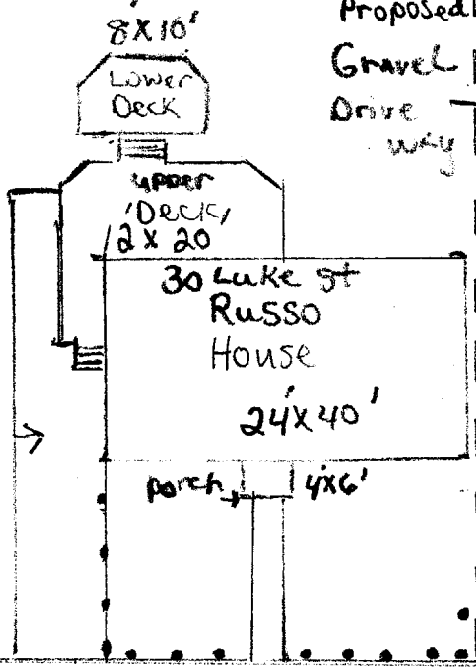 8X10'
Lower
Deck
Proposed
Gravel
Drive
Way
upper
Deck
12 X 20
30 Luke St
Russo
House
24'X40'
porch
4'X6'